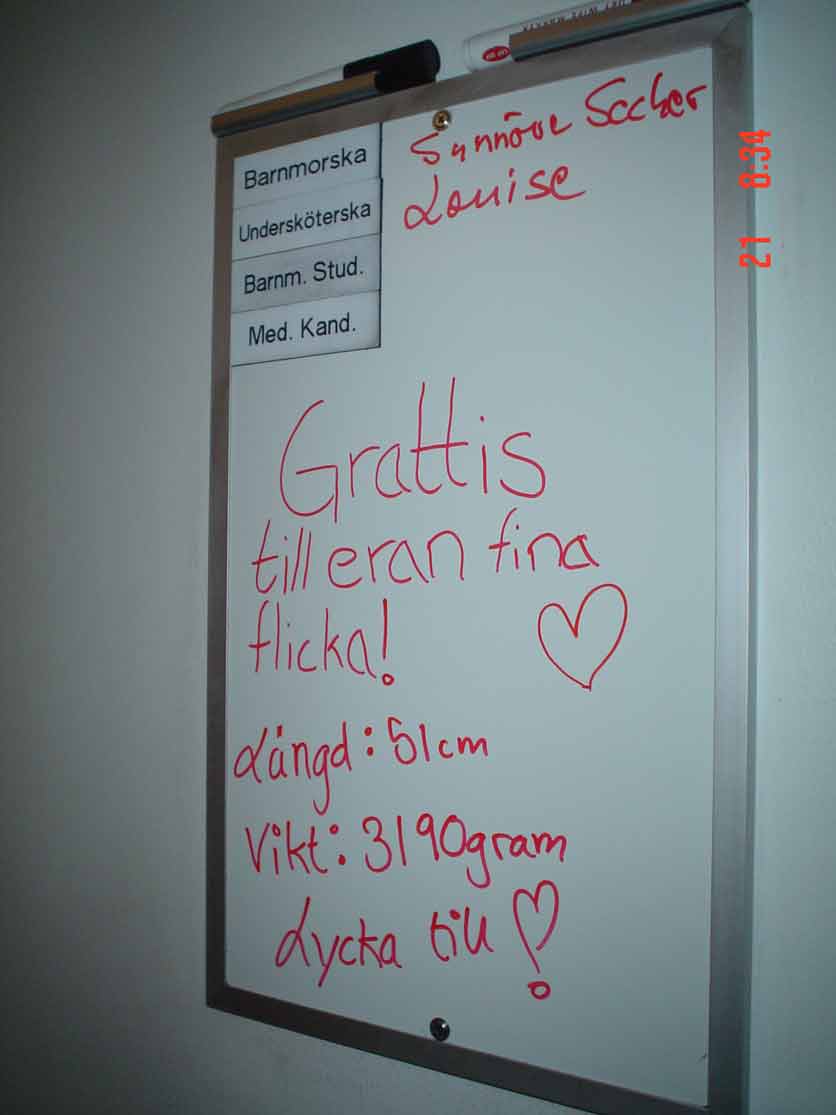 Barnmorska
Synnöve
Undersköterska
Louise
Barnm. Stud.
Med. Kand.
Grattis
till eran fina
flicka!
Längd: 51cm
Vikt: 3190gram
Lycka till
21 8:34